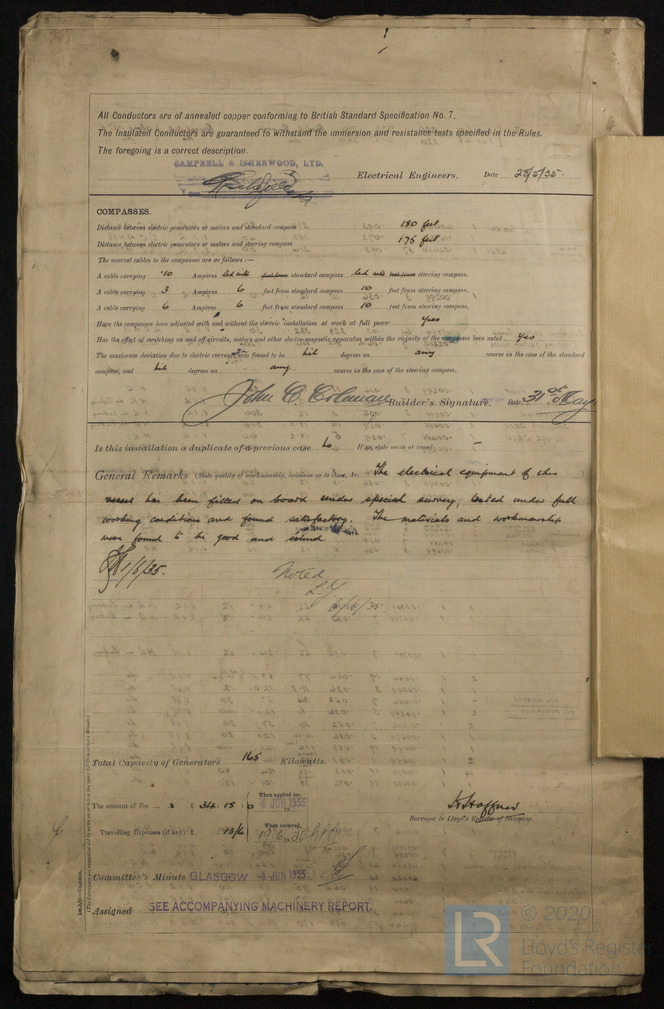 All Conductors are of annealed copper conforming to British Standard Specification No. 7.
The Insulated Conductors are guaranteed to withstand the immersion and resistance tests specified in the Rules.
The foregoing is a correct description.
CAMPBELL & ISHERWOOD, LTD.
Electrical Engineers. Date 28/5/35.
COMPASSES.
Distance between electric generators or motors and standard compass 180 feet
Distance between electric generators or motors and steering compass 175 feet
The nearest cables to the compasses are as follows:—
A cable carrying .10 Ampères led into feet from standard compass led into feet from steering compass.
A cable carrying 3 Ampères 6 feet from standard compass 10 feet from steering compass.
A cable carrying 6 Ampères 6 feet from standard compass 10 feet from steering compass.
Have the compasses been adjusted with and without the electric installation at work at full power yes
Has the effect of switching on and off circuits, motors and other electro-magnetic apparatus within the vicinity of the compasses been noted yes
The maximum deviation due to electric currents was found to be nil degrees on any course in the case of the standard
compass, and nil degrees on any course in the case of the steering compass.
John C. Colman Builder's Signature. Date 31st May
Is this installation a duplicate of a previous case No If so, state name of vessel —
General Remarks (State quality of workmanship, opinions as to class, &c. The electrical equipment of this
vessel has been fitted on board under special survey, tested under full
working conditions and found satisfactory. The materials and workmanship
was found to be good and sound
1/6/35.
Noted
6/6/35
Total Capacity of Generators 165 Kilowatts.
The amount of Fee ... £ 34 : 15 : 0 When applied for, 4 JUN 1935
Surveyor to Lloyd's Register of Shipping.
Travelling Expenses (if any) £ : 13/6 When received, 19.6.35
Committee's Minute GLASGOW 4 JUN 1935
Assigned SEE ACCOMPANYING MACHINERY REPORT.
LR © 2020
Lloyd's Register
Foundation